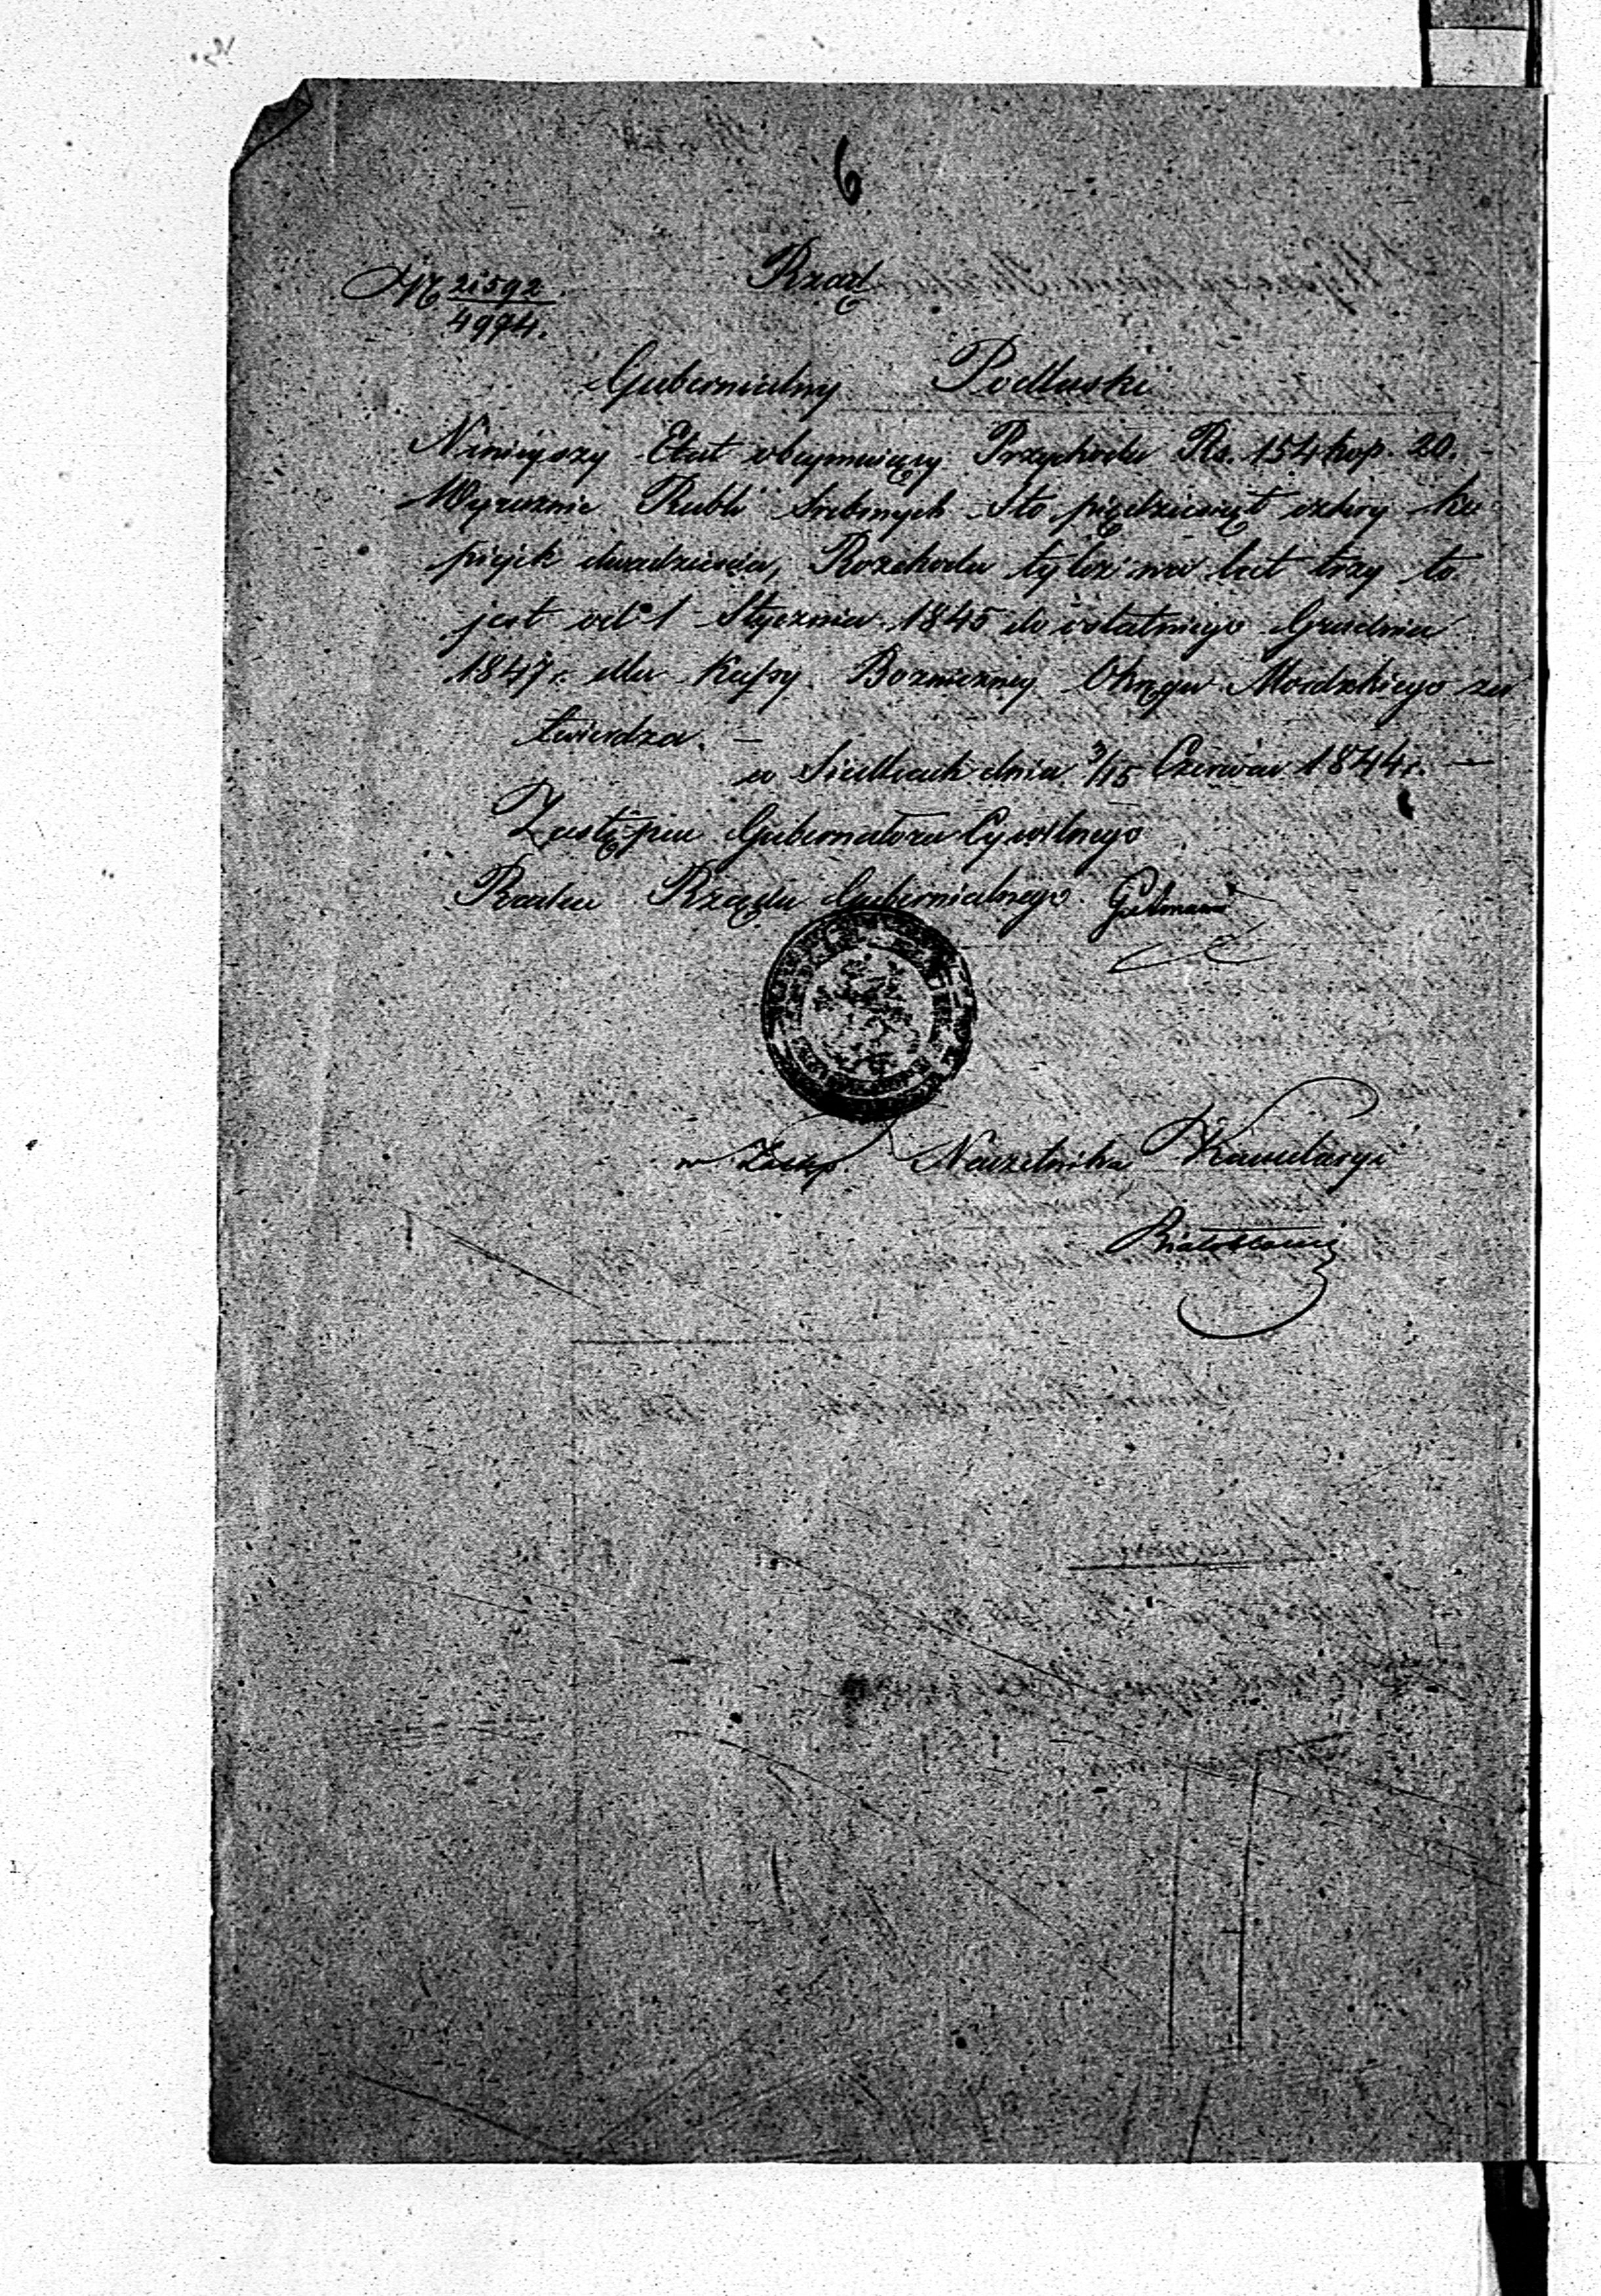 6
Rząd
Nr 21592
4974.
Gubernialny Podlaski
Niniejszy Etat obejmujący Przychodu Rs. 154 kop. 20.
Wyraznie Rubli Srebrnych Sto pięćdziesiąt cztery ko
piejek dwadzieścia, Rozchodu tyleż na lat trzy to
jest od 1 Stycznia 1845 do ostatniego Grudnia
1847 r. dla Kassy Bozniczney Okręgu Mordzkiego za
twierdza. —
w Siedlcach dnia 3/15 Czerwca 1844 r. —
Zastępca Gubernatora Cywilnego
Radca Rządu Gubernialnego.
w Zastęp. Naczelnika Kancelaryi